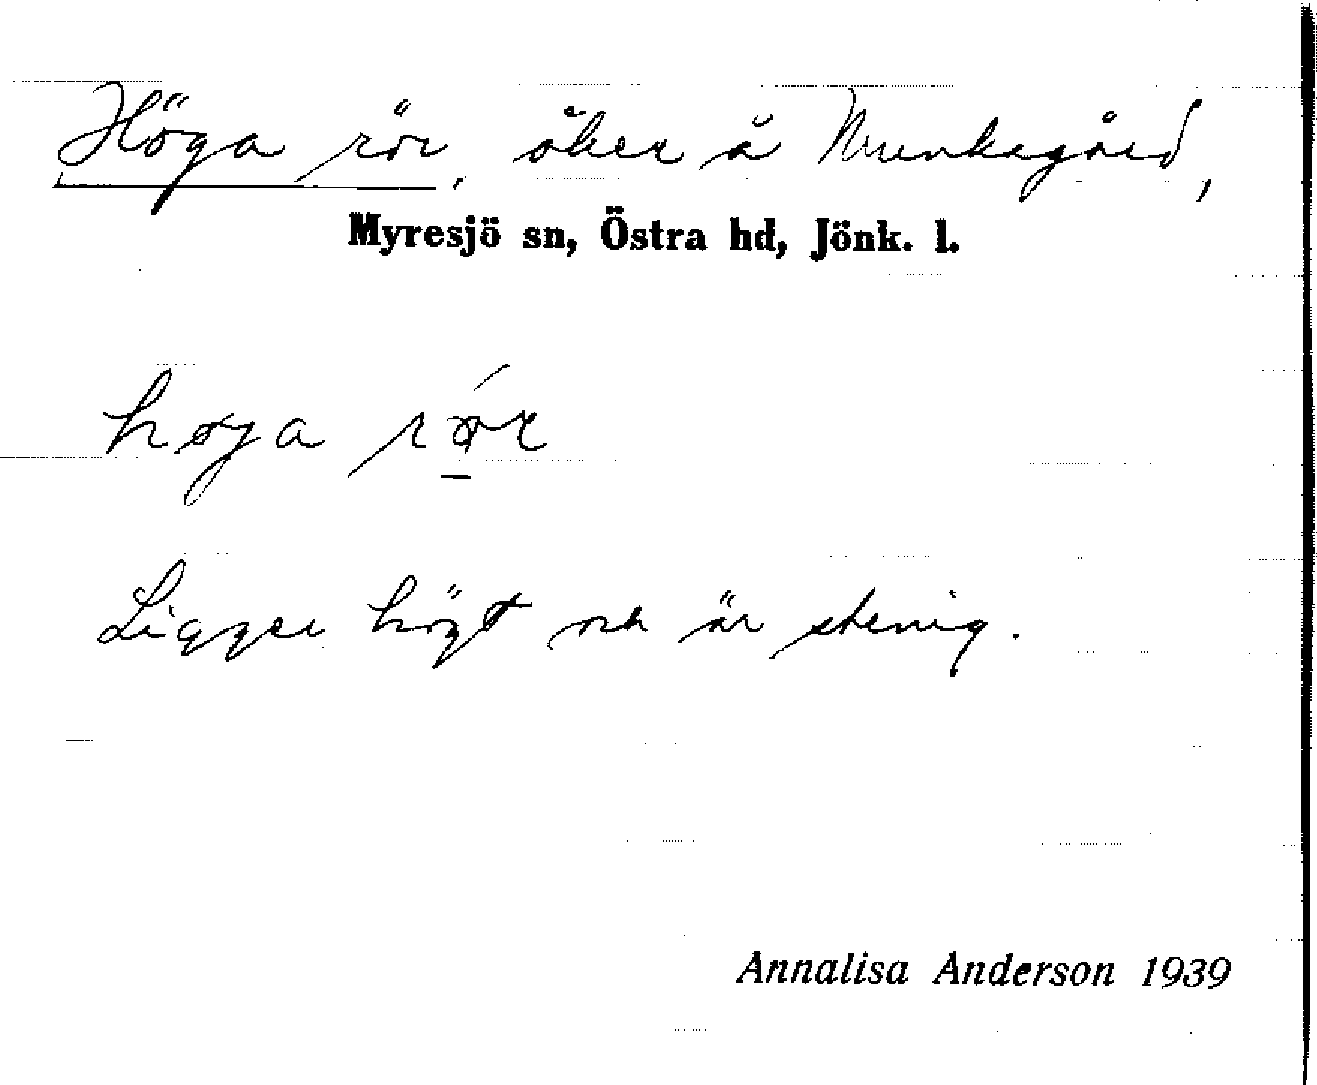 Höga rör, åker å Munkagård,
Myresjö sn, Östra hd, Jönk. l.
høga rǿr
Ligger högt och är stenig.
Annalisa Anderson 1939